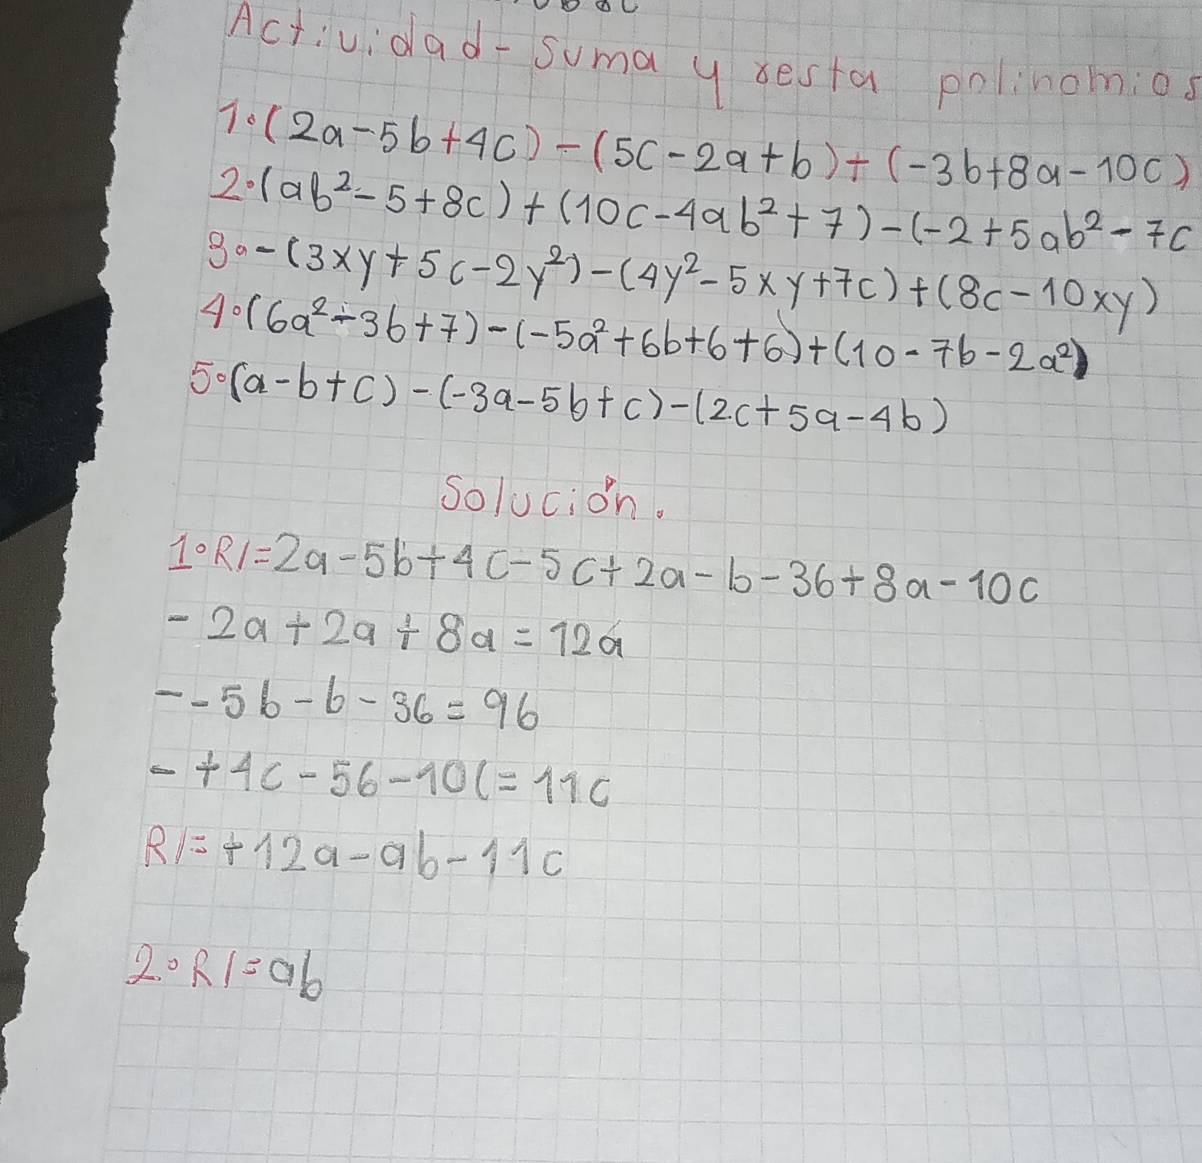 Actividad - Suma y resta polinomios
1. (2a-5b+4c)-(5c-2a+b)+(-3b+8a-10c)
2. (ab²-5+8c)+(10c-4ab²+7)-(-2+5ab²-7c
3. -(3xy+5c-2y²)-(4y²-5xy+7c)+(8c-10xy)
4. (6a²-3b+7)-(-5a²+6b+6+6)+(10-7b-2a²)
5. (a-b+c)-(-3a-5b+c)-(2c+5a-4b)
Solución.
1. R/=2a-5b+4c-5c+2a-b-3b+8a-10c
- 2a+2a+8a=12a
- -5b-b-3b=9b
- +4c-5b-10c=11c
R/=+12a-9b-11c
2. R/=ab